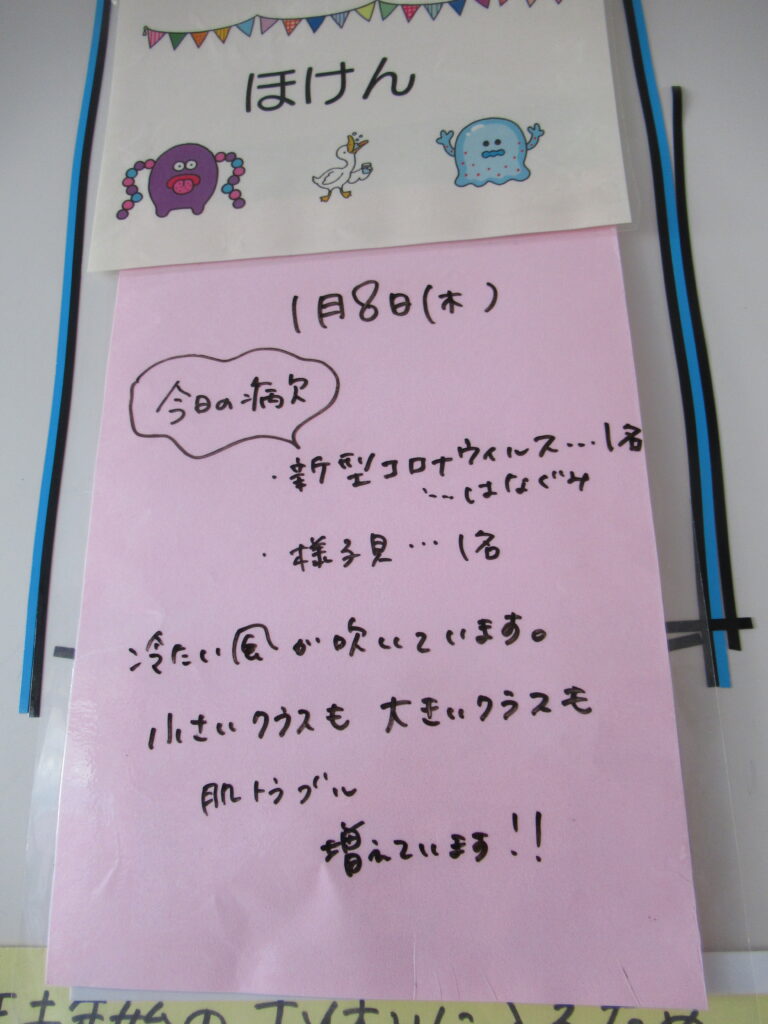 ほけん
1月8日(木)
今日の病欠
・新型コロナウィルス…1名
…はなぐみ
・様子見…1名
冷たい風が吹いています。
小さいクラスも 大きいクラスも
肌トラブル
増えています!!